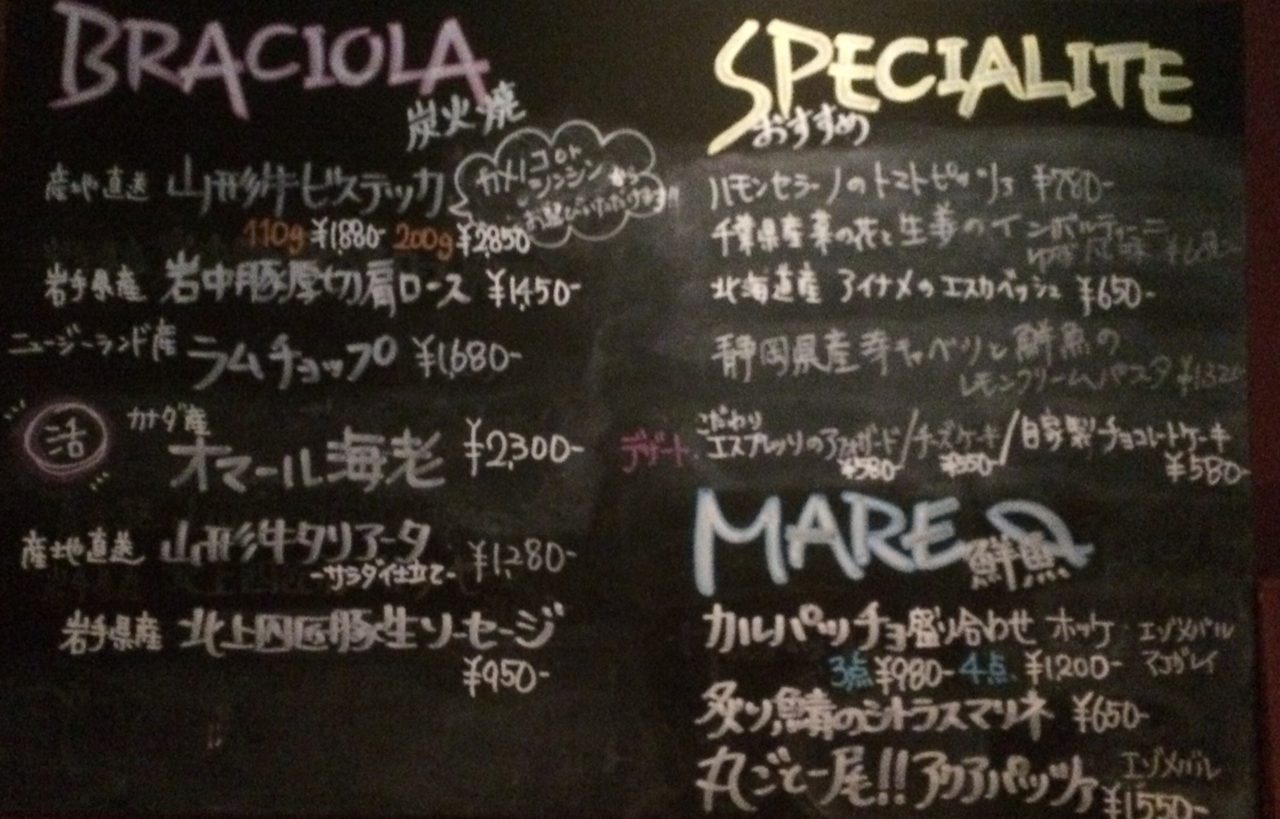 BRACIOLA
炭火焼
産地直送 山形牛ビステッカ
カメノコor
シンシンから
お選びいただけます!!
110g ¥1,880- 200g ¥2,850
岩手県産 岩中豚厚切肩ロース ¥1,450-
ニュージーランド産
ラムチョップ ¥1,680-
活 カナダ産
オマール海老 ¥2,300-
産地直送 山形牛タリアータ ¥1,280-
-サラダ仕立て-
岩手県産 北上四匠豚生ソーセージ
¥950-
SPECIALITE
おすすめ
ハモンセラーノのトマトピッツァ ¥780-
千葉県産菜の花と生姜のインボルティーニ
風味
北海道産 アイナメのエスカベッシュ ¥650-
静岡県産芽キャベツと鮮魚の
レモンクリームパスタ ¥1320-
デザート こだわり
エスプレッソのアフォガード/チーズケーキ/自家製チョコレートケーキ
¥580- ¥550- ¥580-
MARE
鮮魚
カルパッチョ盛り合わせ ホッケ・エゾメバル
マコガレイ
3点 ¥980- 4点 ¥1,200-
炙り鯖のシトラスマリネ ¥650-
丸ごと一尾!!アクアパッツァ エゾメバル
¥1550-